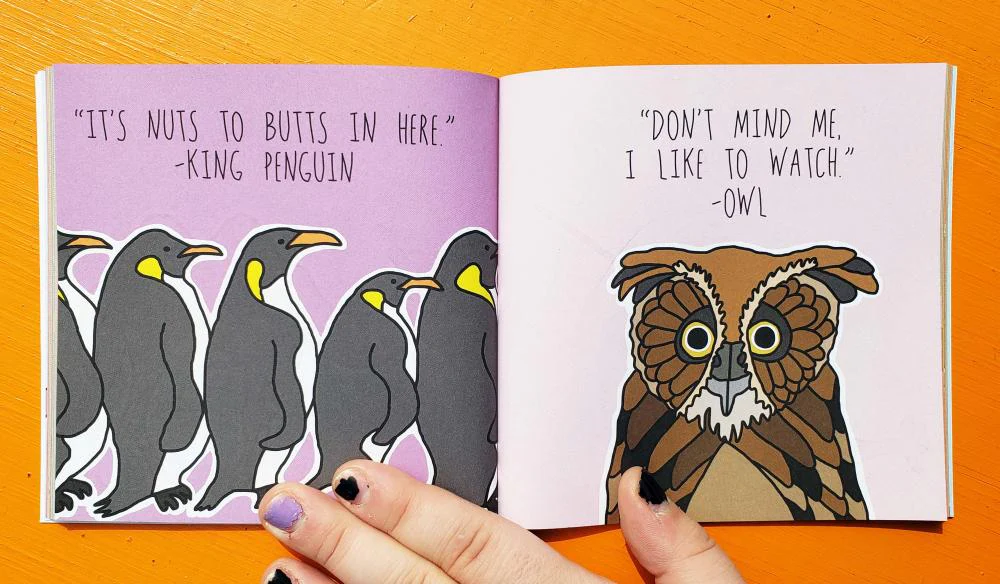 "IT'S NUTS TO BUTTS IN HERE."
-KING PENGUIN
"DON'T MIND ME,
I LIKE TO WATCH."
-OWL